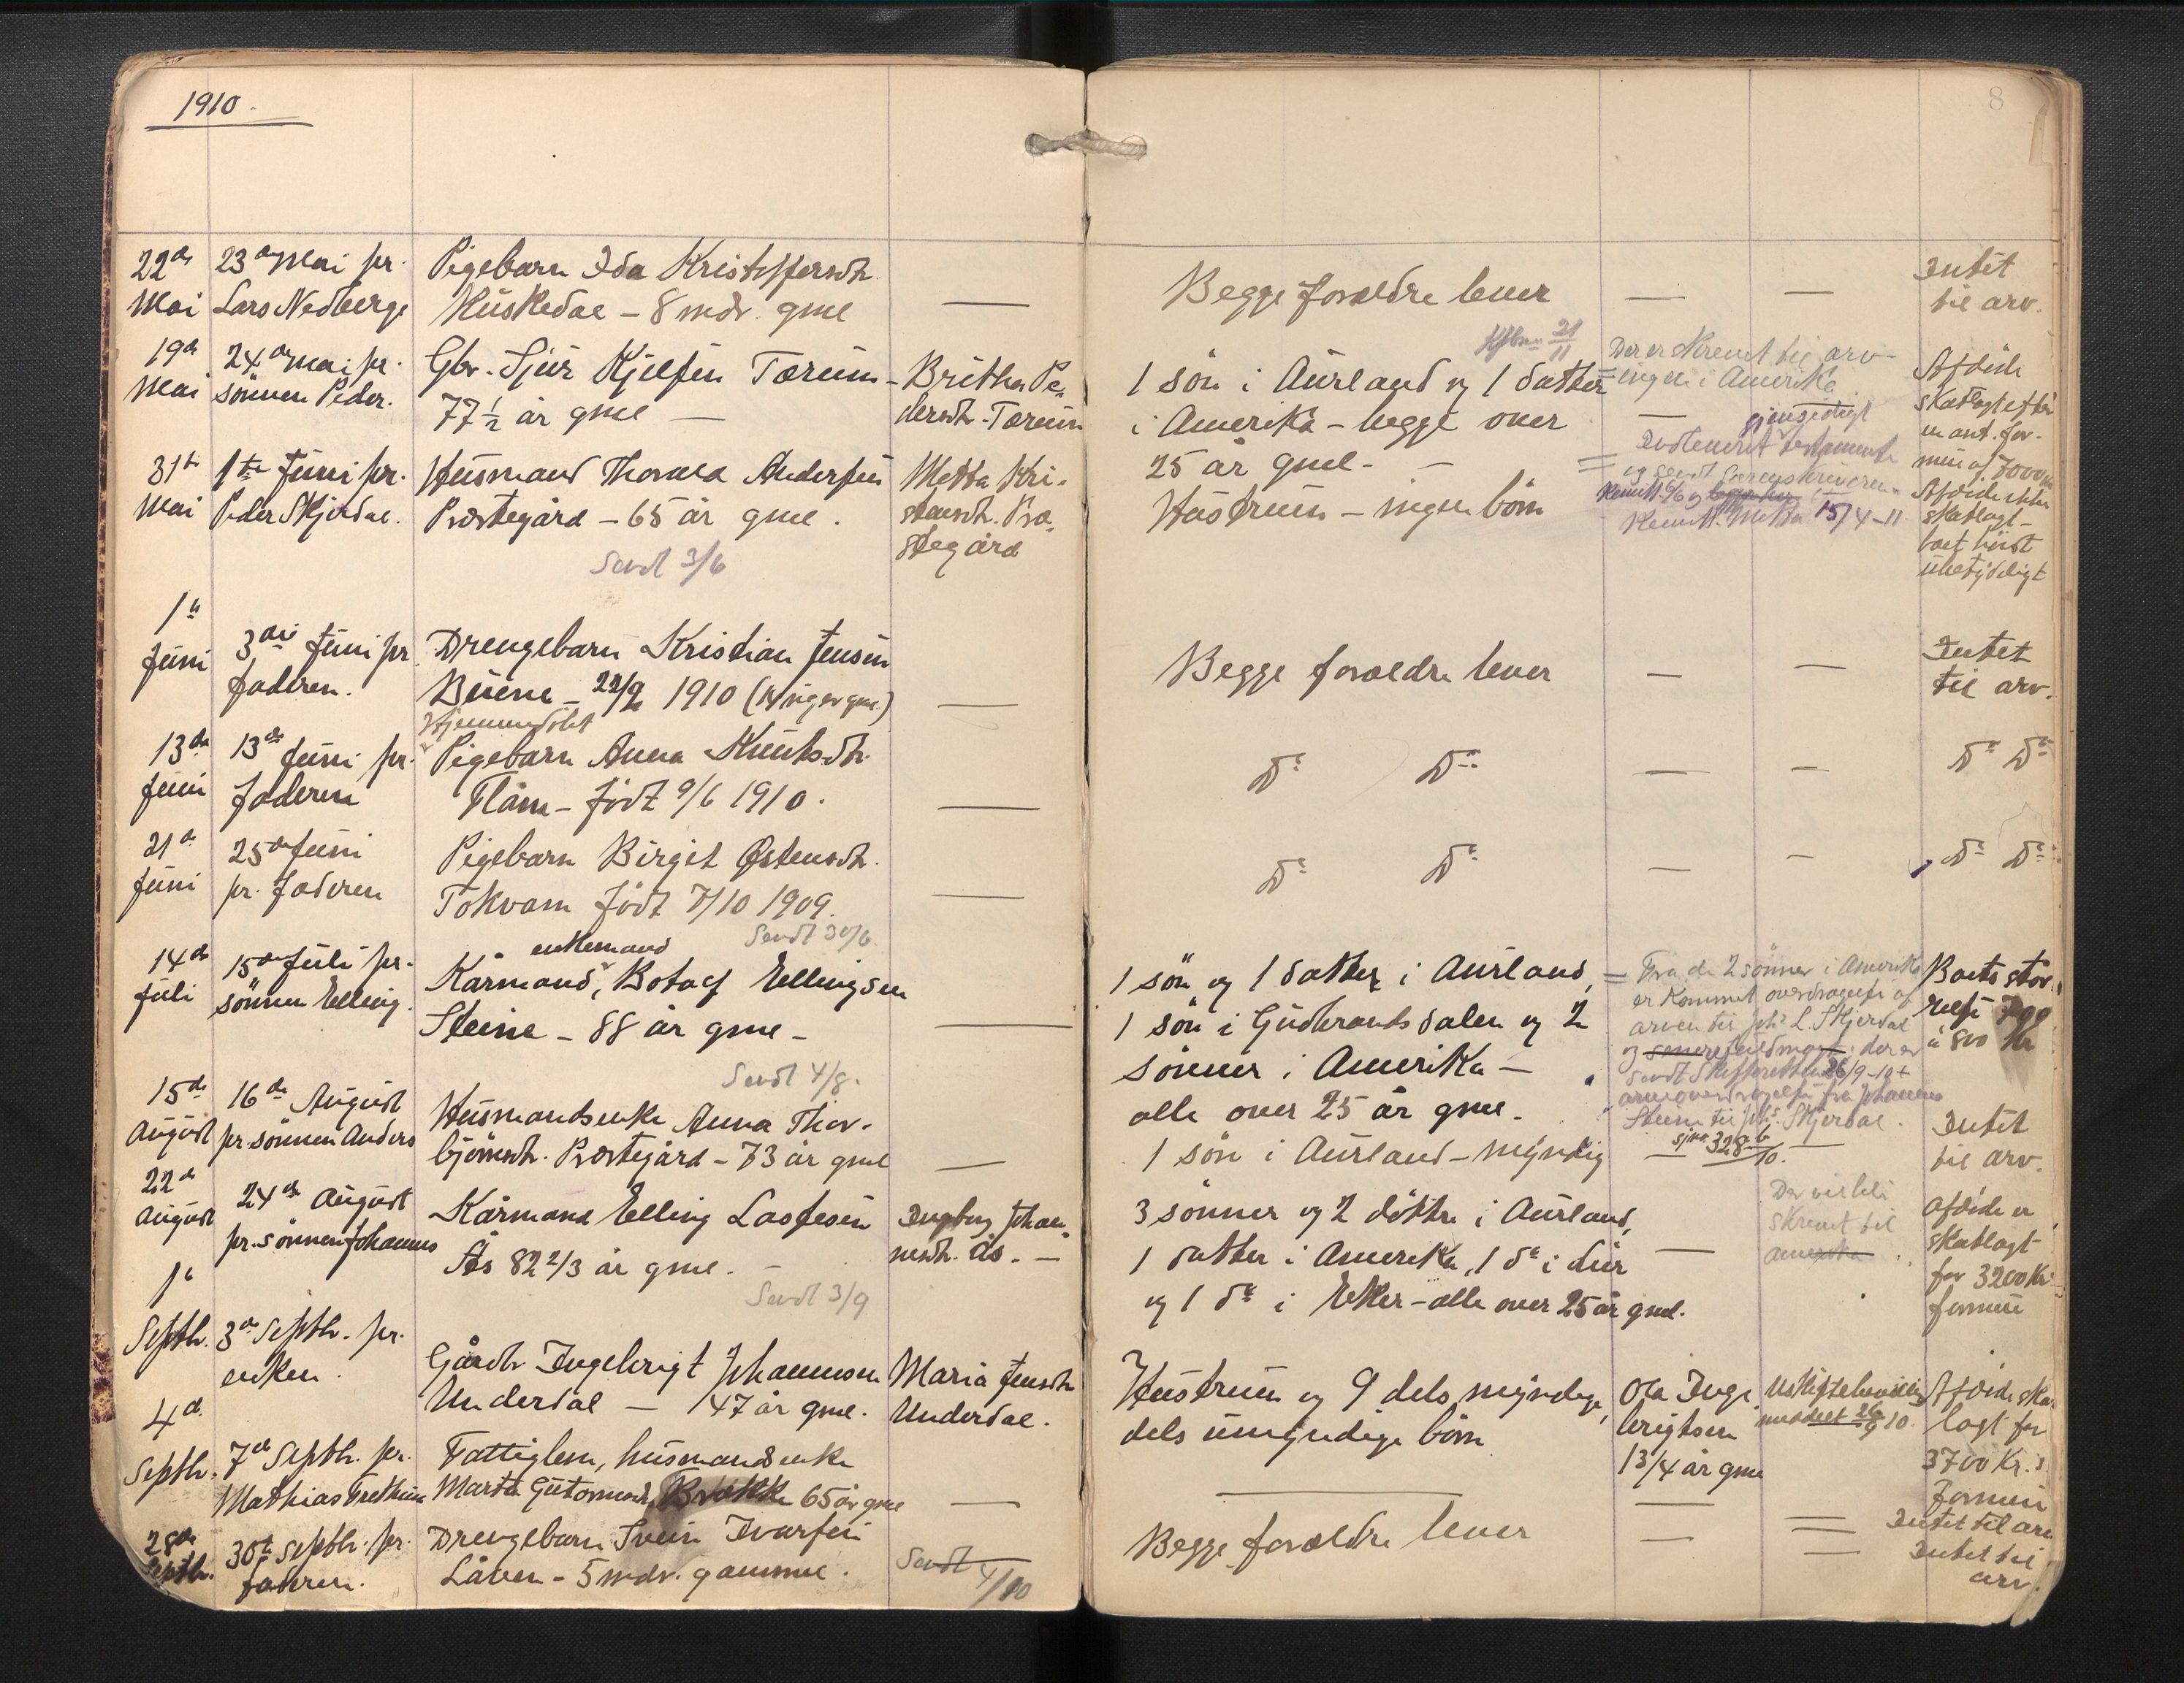 1910.
8
22de
Mai
23de Mai pr.
Lars Nedberge
Pigebarn Ida Kristoffersdtr.
Huskedal – 8 mdr. gml
—
Begge forældre lever
— —
Intet
til arv.
19de
Mai
24de Mai pr.
sönnen Peder.
Gbr. Sjur Kjelsen Tærum –
77½ år gml —
Britha Pe-
dersdtr. Tærum
21/11
1 sön i Aurland og 1 datter
i Amerika – begge over
25 år gml. –
Der er skrevet til arv-
ingen i Amerika
—
Afdöde
skatlagt efter
en ant. for-
mue af 7000
31te
Mai
1ste Juni pr.
Peder Skjerdal.
Husmand Thomas Andersen
Præstegård – 65 år gml.
Sendt 3/6
Metta Kri-
stensdtr. Præ-
stegård
Hustruen – ingen börn
gjensidigt
Indleveret testamente
og sendt Sorenskriveren
15/4–11
Afdöde ikke
skatlagt –
boet höist
ubetydeligt
1ste
Juni
3die Juni pr
faderen.
Drengebarn Kristian Jensen
1910
—
Begge forældre lever
— —
Intet
til arv.
13de
Juni
13de Juni pr.
faderen
Hjemmedöbt
Pigebarn Anna Knutsdtr.
Flåm – födt 9/6 1910.
—
Do Do
— —
Do Do
21de
Juni
25de Juni
pr. faderen
Pigebarn Birgit Østensdtr.
Tokvam födt 7/10 1909.
Sendt 30/6.
—
Do Do
— —
Do Do
14de
Juli
15de Juli pr.
sönnen Elling.
enkemand
Kårmand, Botolf Ellingsen
Steine – 88 år gml –
Sendt 4/8.
—
1 sön og 1 datter i Aurland,
1 sön i Gudbrandsdalen og 2
sönner i Amerika –
alle over 25 år gml.
Fra de 2 sönner i Amerika
er kommet overdragelse af
arven til Johs L. Skjerdal
26/9–10 +
arveoverdragelse fra Johannes
Steine til Johs. Skjerdal.
Boets stör-
relse 700
à 800 Kr
15de
August
16de August
pr. sönnen Anders
Husmandsenke Anna Thor-
björnsdtr. Præstegård – 73 år gml
—
1 sön i Aurland – myndig
Intet
til arv.
22de
August
24de August
pr. sönnen Johannes
Kårmand Elling Lassesen
Ås 82 2/3 år gml. –
Sendt 3/9
Ingborg Johan-
nesdtr. Ås. –
3 sönner og 2 döttre i Aurland,
1 datter i Amerika, 1 do i Lier
og 1 do i Eker – alle over 25 år gml.
—
Der vil bli
skrevet til
Amerika
Afdöde er
skatlagt
for 3200 Kr.
formue
1ste
Septbr.
3de Septbr. pr.
enken.
Gårdbr Ingebrigt Johannesen
Underdal — 47 år gml.
Maria Jensdtr
Underdal.
Hustruen og 9 dels myndige,
dels umyndige börn
Ola Inge-
brigtsen
13/4 år gml
Uskiftebevilling
meddelt 26/9 10.
Afdöde skat-
lagt for
3700 Kr.s
formue
4de
Septbr.
7de Septbr. pr.
Mathias Fretheim
Fattiglem, husmandsenke
Marta Guttormsdtr. Brække 65 år gml
—
—
— —
Intet til arv
28de
Septbr.
30te Septbr. pr.
faderen.
Drengebarn Svein Ivarsen
Låven – 5 mdr. gammel.
Sendt 4/10
Begge forældre lever
— —
Intet til
arv.